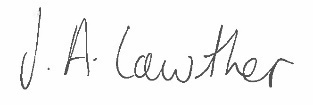 J. A. Cawther